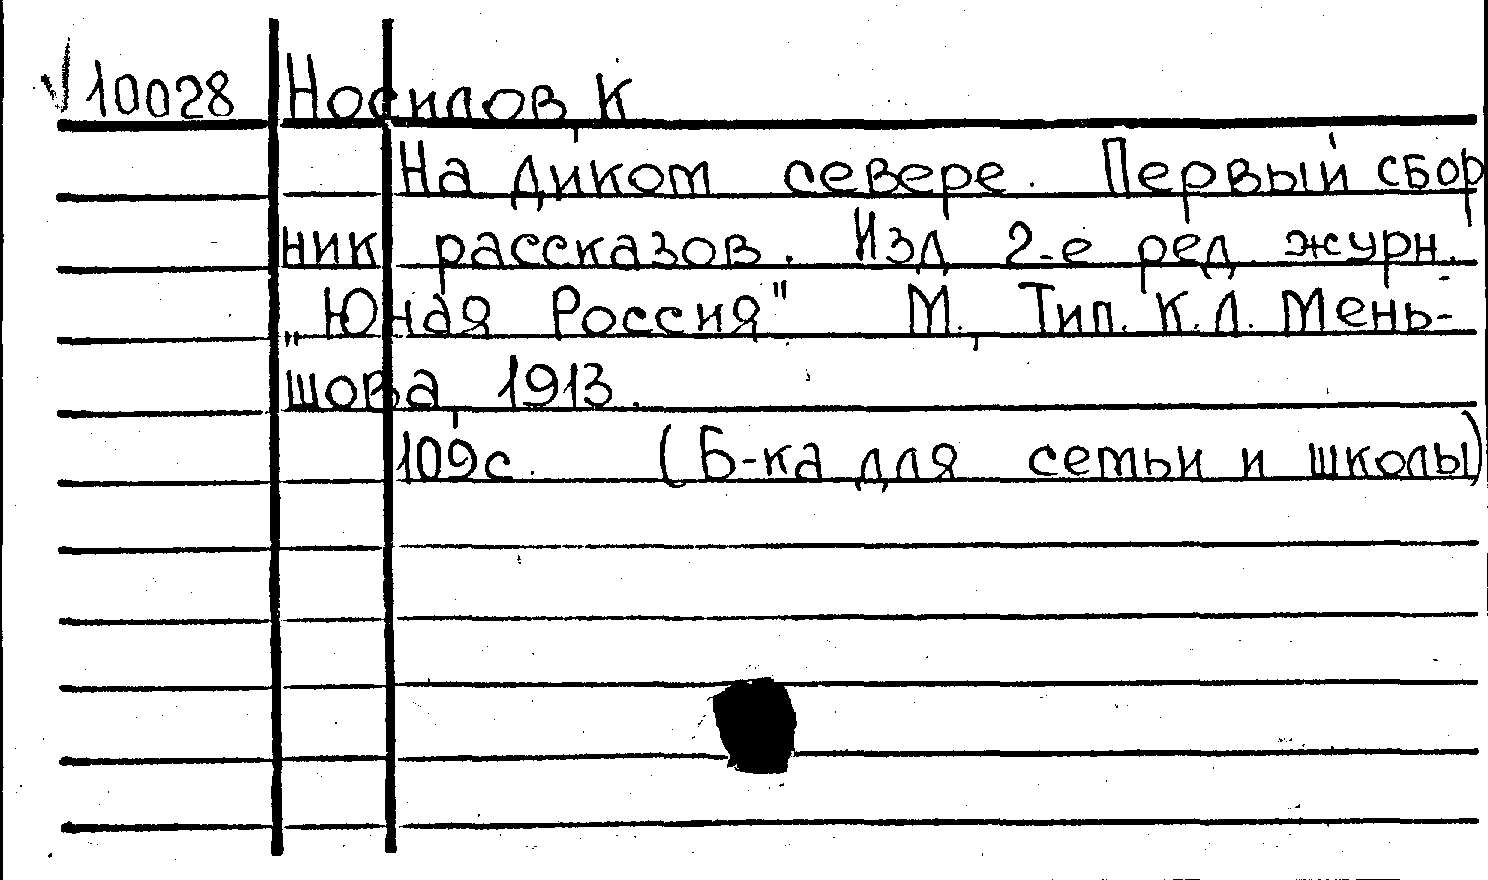 √10028 Носилов, К
На диком севере. Первый сбор
ник рассказов. Изд 2-е ред. журн.
„Юная Россия" М., Тип. К.Л. Мень-
шова, 1913.
109с. (Б-ка для семьи и школы)